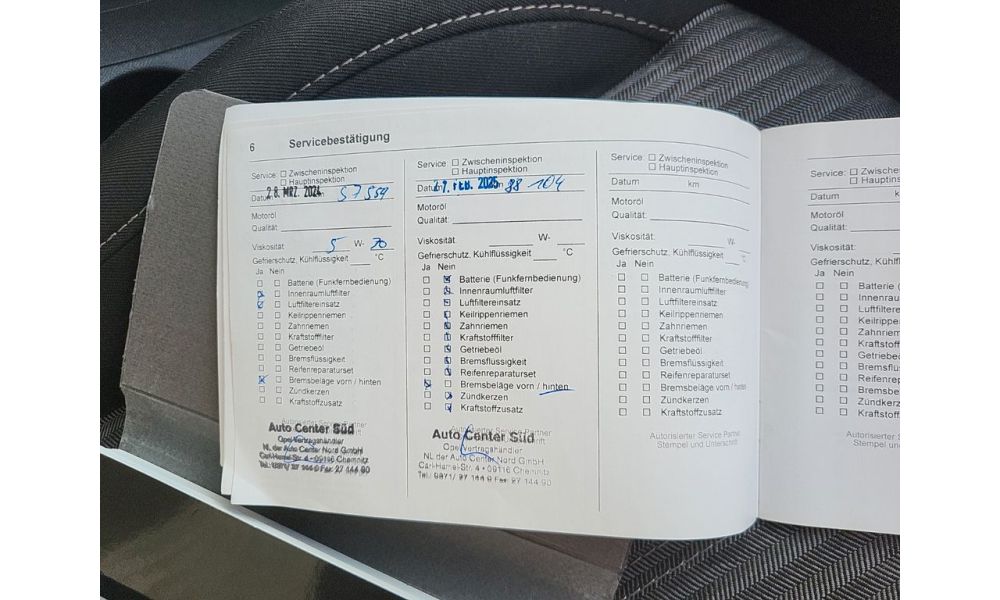 6 Servicebestätigung
Service: ☐ Zwischeninspektion
☐ Hauptinspektion
Datum 28. MRZ. 2024 57559
Motoröl
Qualität:
Viskosität 5 W- 30
Gefrierschutz, Kühlflüssigkeit °C
Ja Nein
Batterie (Funkfernbedienung)
Innenraumluftfilter
Luftfiltereinsatz
Keilrippenriemen
Zahnriemen
Kraftstofffilter
Getriebeöl
Bremsflüssigkeit
Reifenreparaturset
Bremsbeläge vorn / hinten
Zündkerzen
Kraftstoffzusatz
Auto Center Süd
Opel Vertragshändler
NL der Auto Center Nord GmbH
Carl-Hamel-Str. 4 • 09116 Chemnitz
Tel.: 0371/ 27 144 0 Fax: 27 144 90
Service: ☐ Zwischeninspektion
☐ Hauptinspektion
Datum FEB. 2025 88 104
Motoröl
Qualität:
Viskosität: W-
Gefrierschutz, Kühlflüssigkeit °C
Ja Nein
Batterie (Funkfernbedienung)
Innenraumluftfilter
Luftfiltereinsatz
Keilrippenriemen
Zahnriemen
Kraftstofffilter
Getriebeöl
Bremsflüssigkeit
Reifenreparaturset
Bremsbeläge vorn / hinten
Zündkerzen
Kraftstoffzusatz
Auto Center Süd
Opel Vertragshändler
NL der Auto Center Nord GmbH
Carl-Hamel-Str. 4 • 09116 Chemnitz
Tel.: 0371/ 27 144 0 Fax: 27 144 90
Service: ☐ Zwischeninspektion
☐ Hauptinspektion
Datum km
Motoröl
Qualität:
Viskosität: W-
Gefrierschutz, Kühlflüssigkeit °C
Ja Nein
Batterie (Funkfernbedienung)
Innenraumluftfilter
Luftfiltereinsatz
Keilrippenriemen
Zahnriemen
Kraftstofffilter
Getriebeöl
Bremsflüssigkeit
Reifenreparaturset
Bremsbeläge vorn / hinten
Zündkerzen
Kraftstoffzusatz
Autorisierter Service Partner
Stempel und Unterschrift
Service: ☐ Zwischeni
☐ Hauptinsp
Datum k
Motoröl
Qualität:
Viskosität:
Gefrierschutz, Kühlflüssi
Ja Nein
Batterie (
Innenrau
Luftfiltere
Keilrippe
Zahnriem
Kraftstoff
Getriebeö
Bremsflü
Reifenrep
Bremsbel
Zündkerz
Kraftstoff
Autorisierter S
Stempel un